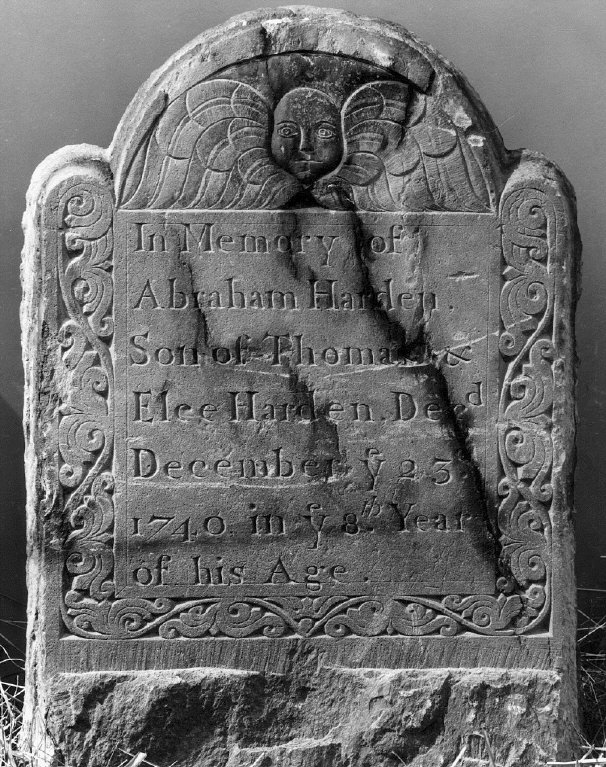 In Memory of
Abraham Harden.
Son of Thomas &
Elce Harden. Decd
December yͤ 23.
1740. in yͤ 8th Year
of his Age.